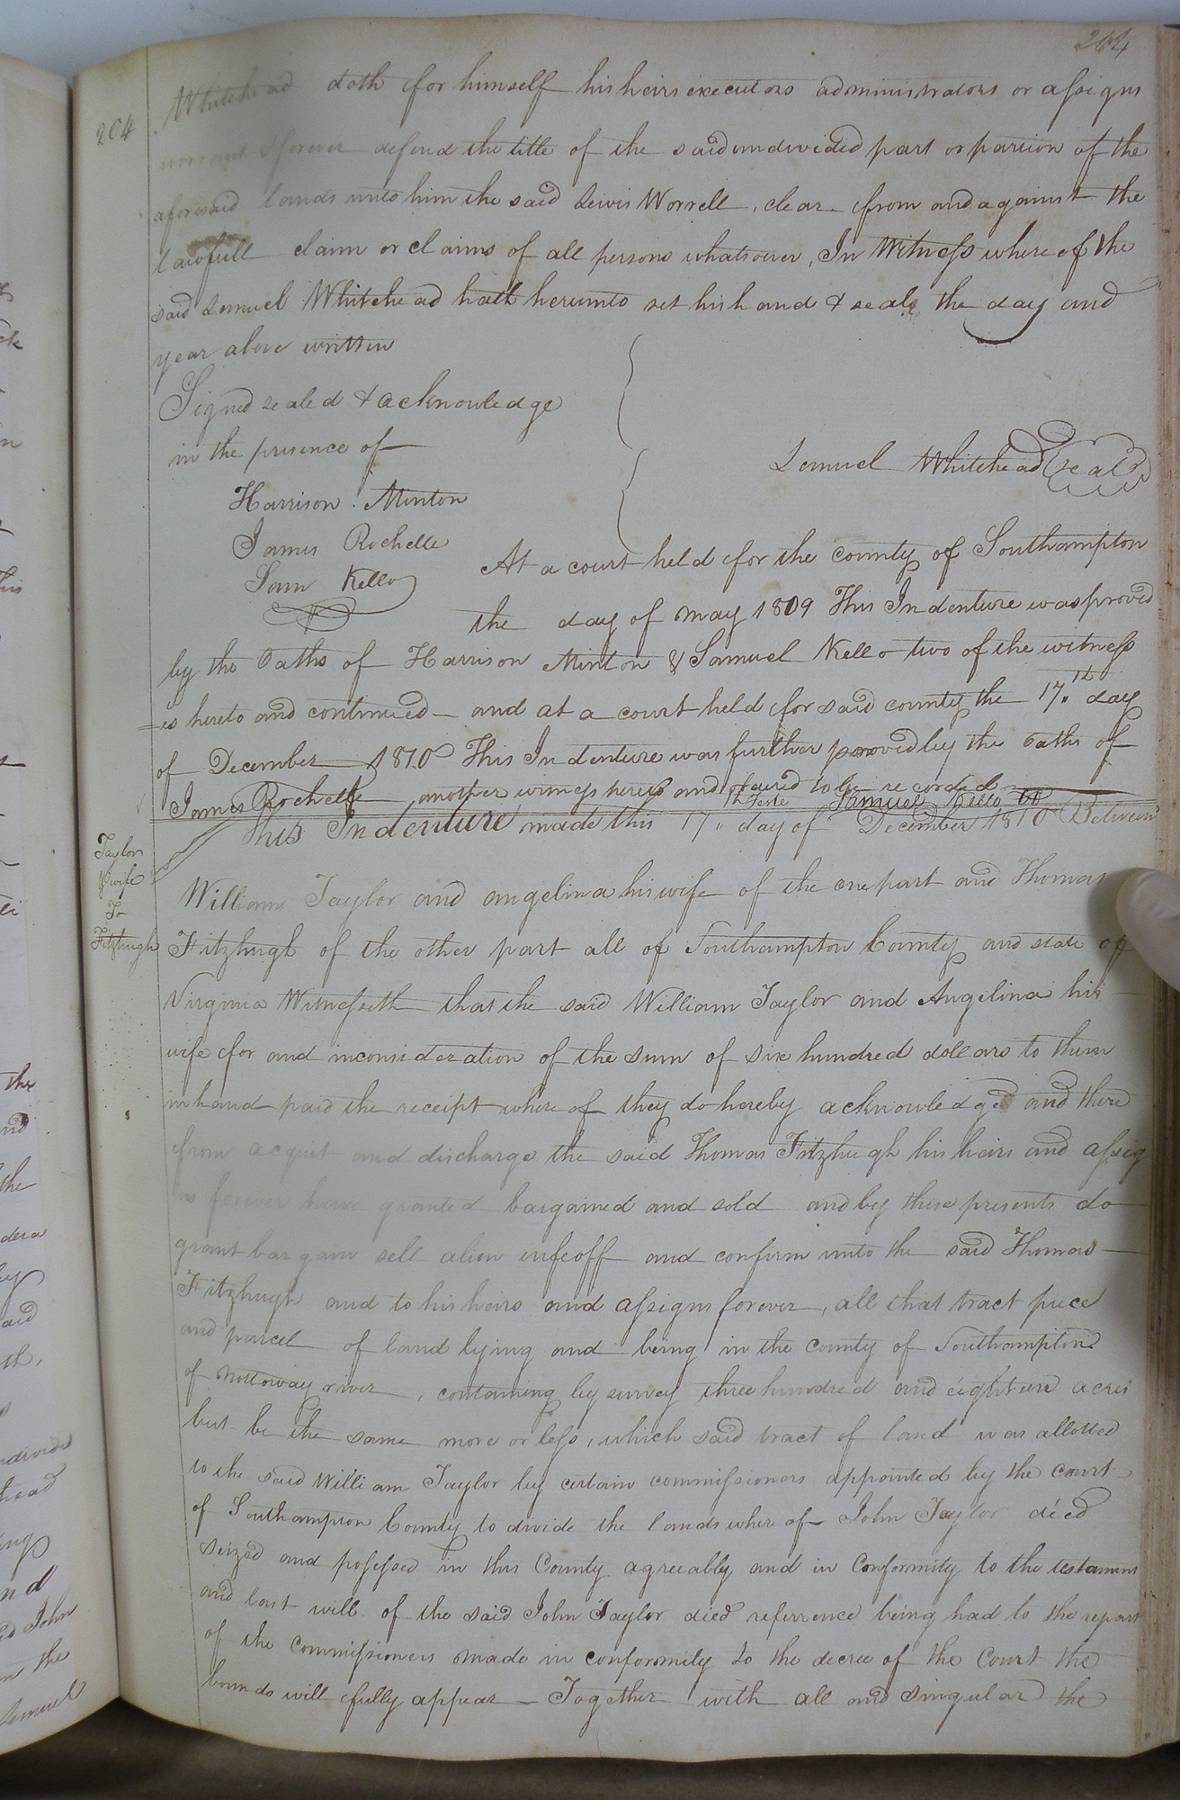 204
204
Whitehead doth for himself his heirs executors administrators or assigns
warrant & forever defend the title of the said undivided part or parcion of the
aforesaid lands unto him the said Lewis Worrell, clear from and against the
lawfull claim or claims of all persons whatsoever, In Witness where of the
said Lemuel Whitehead hath hereunto set his hand & seale the day and
year above written
Signed sealed & acknowledge
in the presence of
Lemuel Whitehead (seal)
Harrison Minton
James Rochelle
Sam Kello
At a court held for the county of Southampton
the day of may 1809 This Indenture was proved
by the Oaths of Harrison Minton & Samuel Kello two of the witness
=es hereto and continued - and at a court held for said county the 17.th day
of December 1810 This Indenture was further proved by the oaths of
James Rochelle another witness hereto and ordered to be recorded
Teste Samuel Kello
Taylor
& wife
To
Fitzhugh
This Indenture made this 17.th day of December 1810 Between
William Taylor and angelina his wife of the one part and Thomas
Fitzhugh of the other part all of Southampton County and state of
Virginia Witnesseth that the said William Taylor and Angelina his
wife for and inconsideration of the sum of six hundred dollars to them
inhand paid the receipt where of they do hereby acknowledged and there
from acquit and discharge the said Thomas Fitzhugh his heirs and assig
ns forever have granted bargained and sold and by these presents do
grant bargain sell alien infeoff and confirm unto the said Thomas
Fitzhugh and to his heirs and assigns forever, all that tract piece
and parcel of land lying and being in the county of Southampton
of Nottoway river, containing by survey three hundred and eighteen acres
but be the same more or less, which said tract of land was allotted
to the said William Taylor by certain commissioners appointed by the court
of Southampton County to divide the lands where of John Taylor died
seized and possessed in this County agreeably and in Conformity to the testament
and last will of the said John Taylor died referrence being had to the report
of the commissioners made in conformity to the decree of the Court the
bounds will fully appear - Together with all and singular the